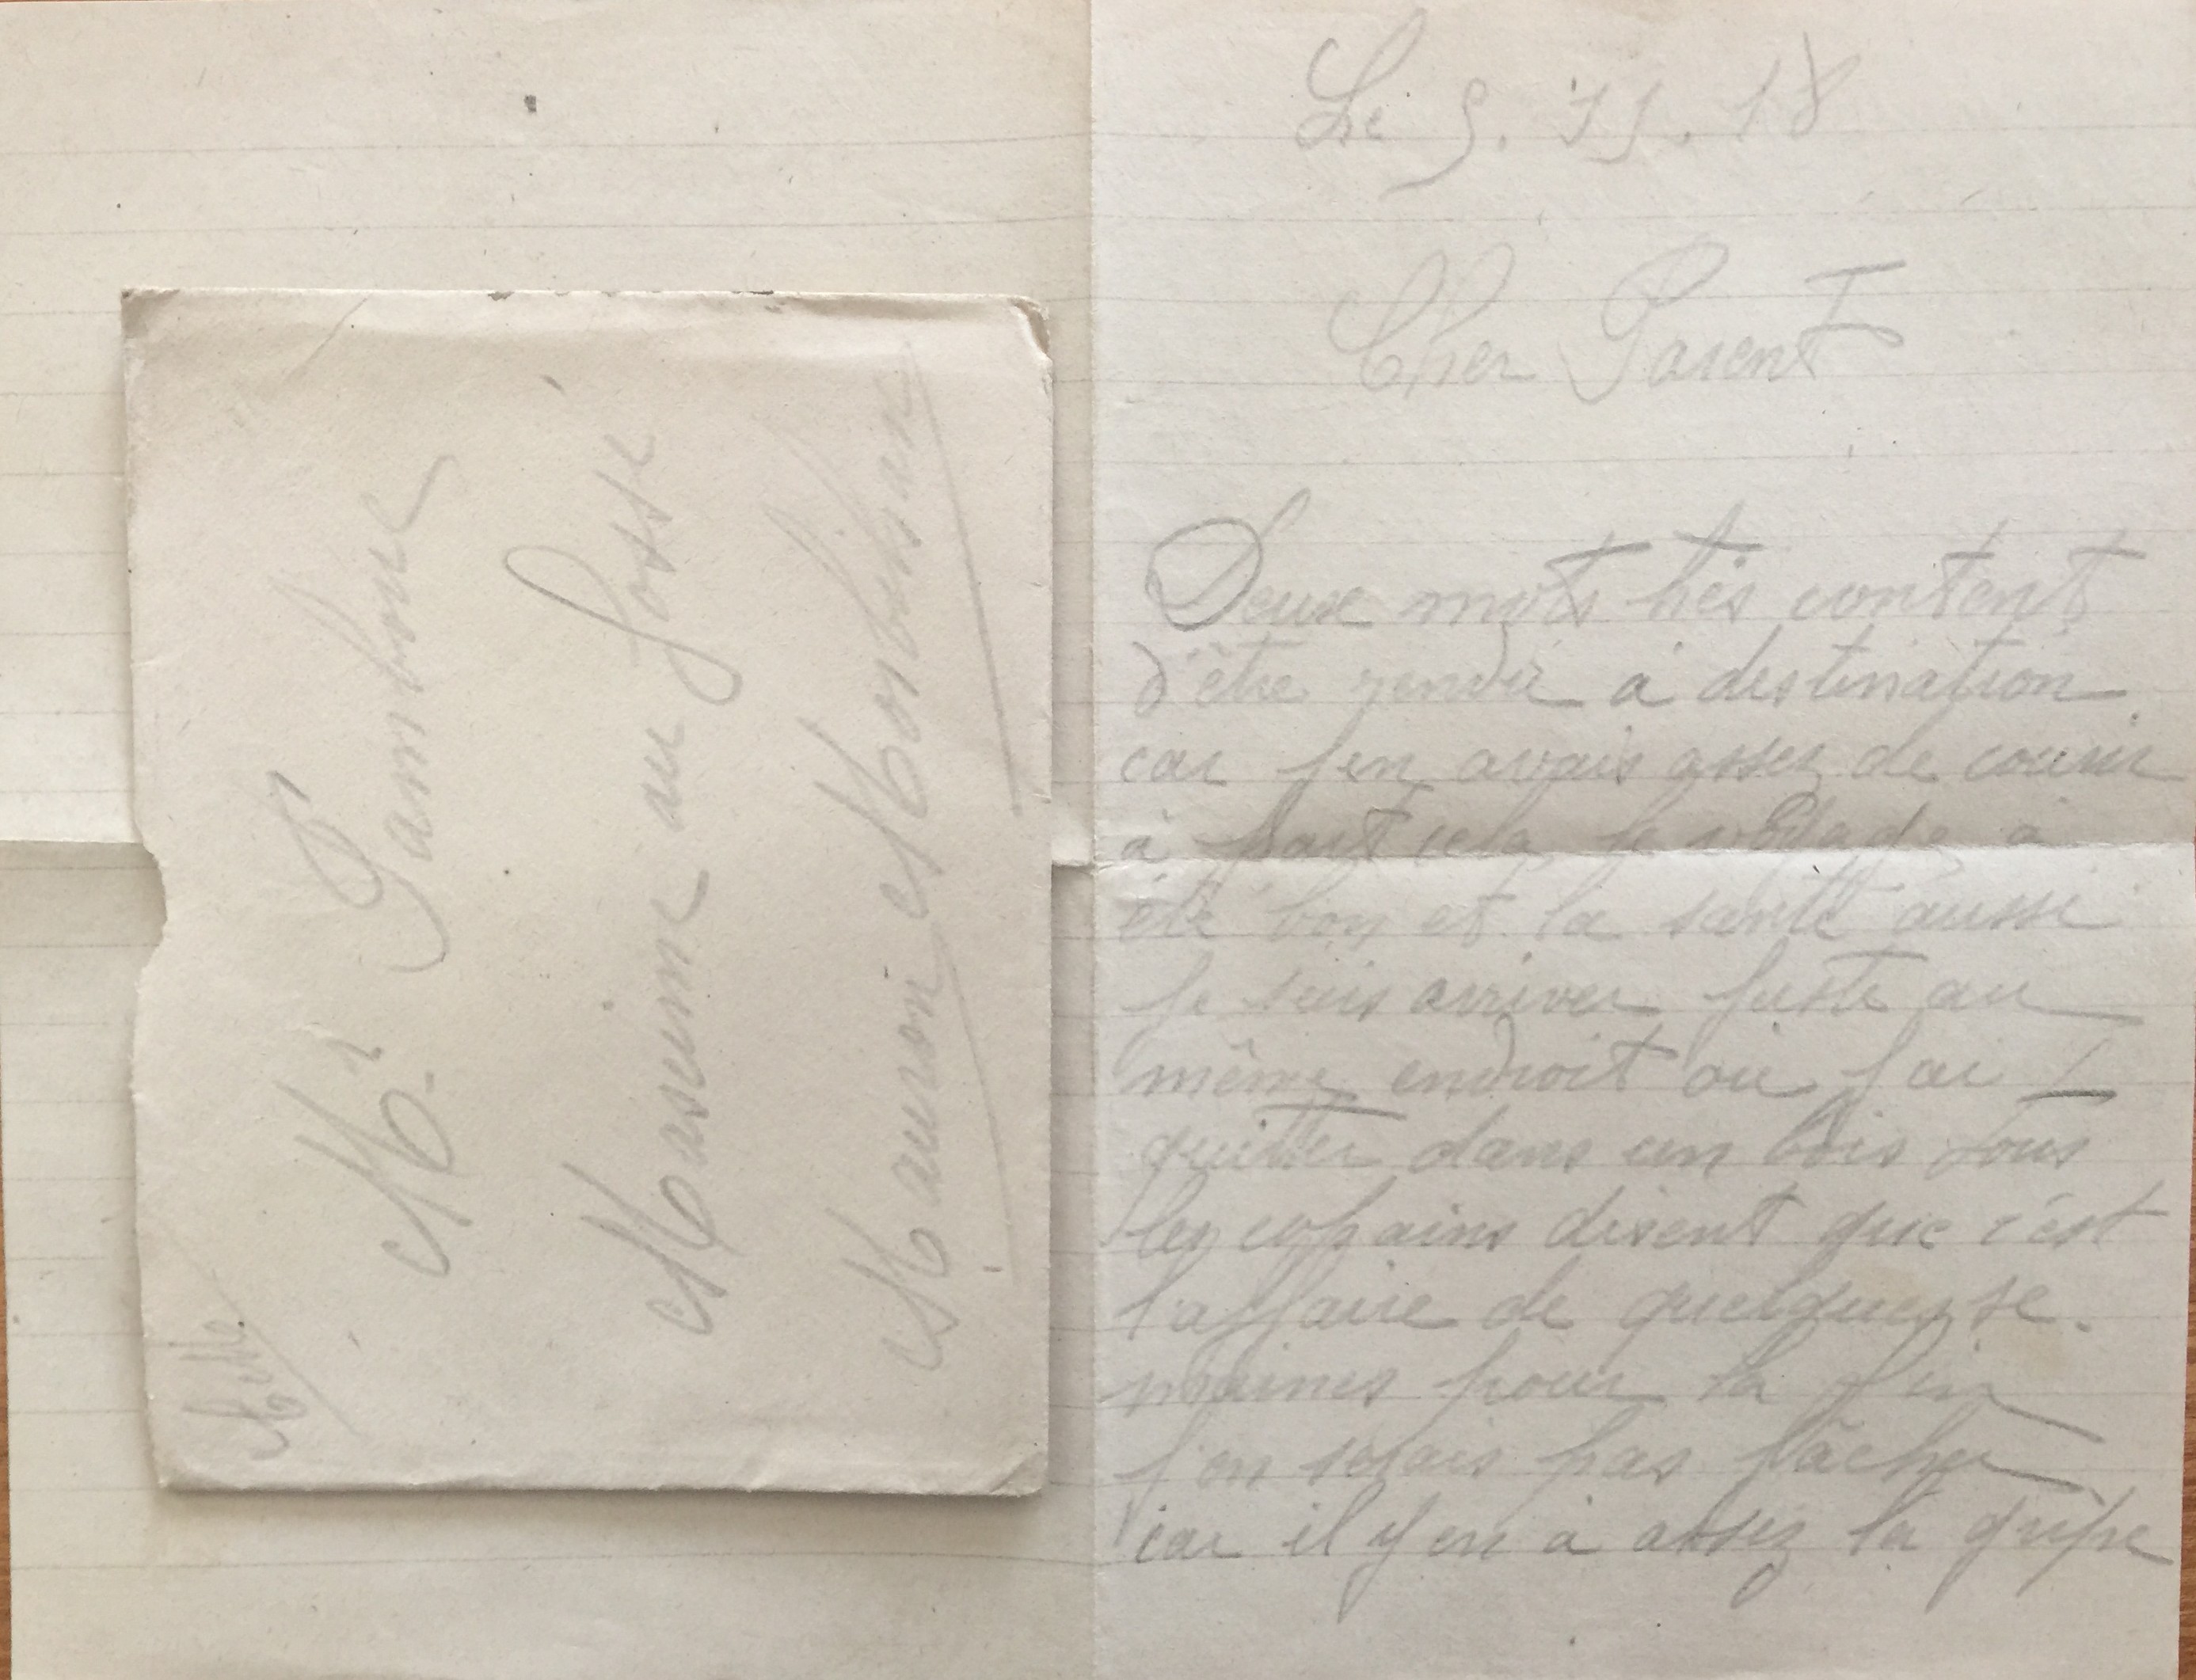 Mr Pambouc
Masseine au Gosse
Mauron Morbihan
Le 5. 11. 18
Cher Parent
Deux mots très content
d'être rendu à destination
car j'en avais assez de courir
à part cela le voyage a
été bon et la santé aussi
je suis arriver juste au
même endroit ou j'ai
quitter dans un bois tous
les copains disent que c'est
l'affaire de quelques se.
maines pour la fin
j'en serais pas fâcher
car il y en a assez la gripe